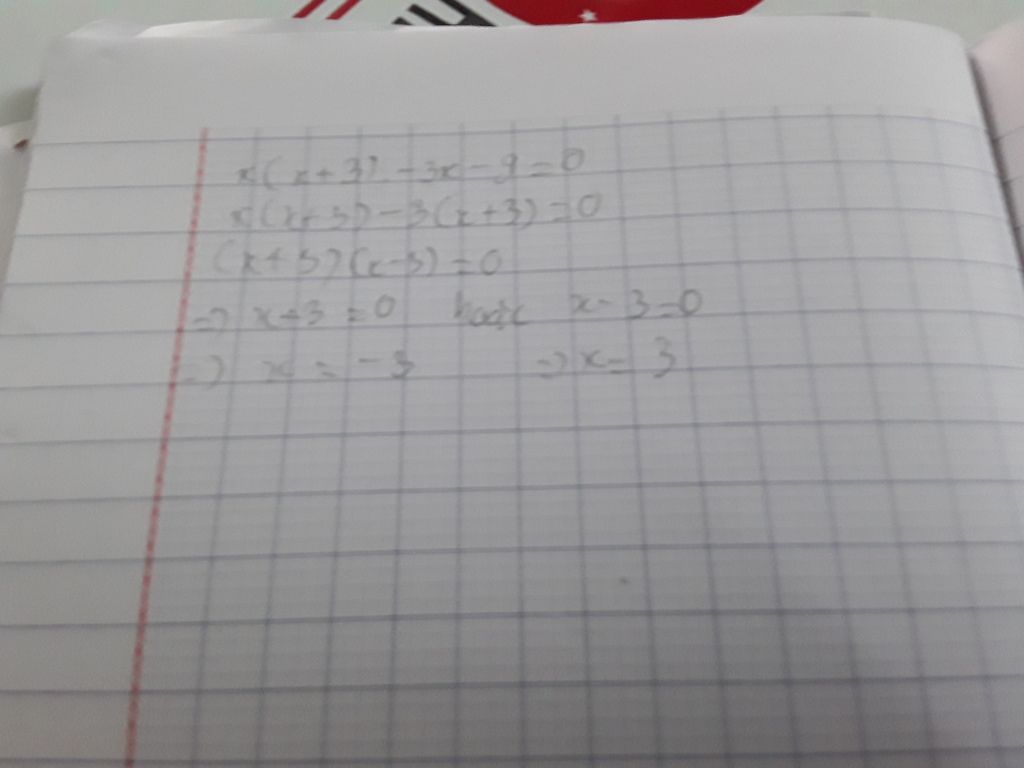 x(x+3) - 3x - 9 = 0
x(x+3) - 3(x+3) = 0
(x+3)(x-3) = 0
=> x+3 = 0 hoặc x-3=0
=> x = -3 => x = 3